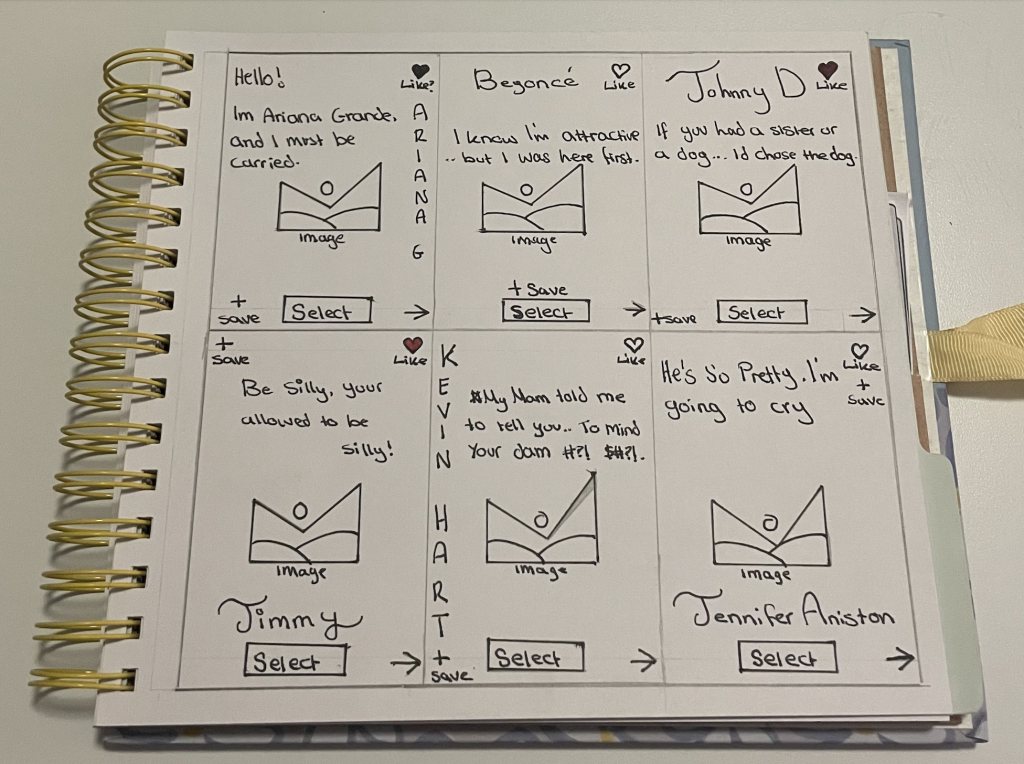 Hello!
Like?
Im Ariana Grande,
and I must be
carried.
ARIANA G
image
+
save
Select
→
Beyoncé
Like
I know I'm attractive
.. but I was here first.
image
+ Save
Select
→
Johnny D
Like
If you had a sister or
a dog... Id chose the dog.
image
+save
Select
→
+
save
Like
Be Silly, your
allowed to be
silly!
image
Jimmy
Select
→
KEVIN HART
Like
$My Mam told me
to tell you.. To mind
Your dam #?! $#?!.
image
+
save
Select
→
He's So Pretty. I'm
going to cry
Like
+
save
image
Jennifer Aniston
Select
→